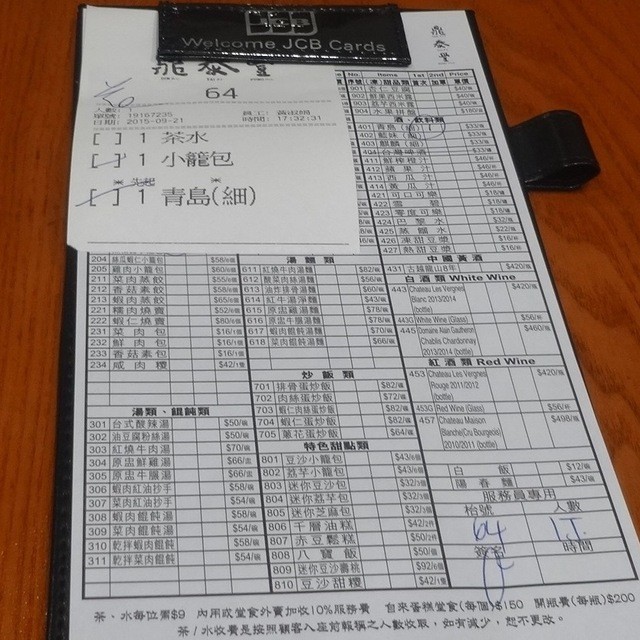 JCB
Welcome JCB Cards
鼎泰豐
鼎泰豐
64
人數:
單號: 19167235
日期: 2015-09-21
員工:
時間: 17:32:31
[ ] 1 茶水
[ ] 1 小籠包
[ ] 1 青島(細)
No. Items 1st 2nd Price
901 杏仁豆腐 $40/碗
酒、飲料類
401 青島
411 鮮榨橙汁 $46/杯
412 蘋果汁 $46/杯
413 西瓜汁 $46/杯
414 黃瓜汁 $46/杯
421 可口可樂 $18/罐
422 雪碧 $18/罐
423 零度可樂 $18/罐
424 巴黎水 $32/支
425 蒸餾水 $22/支
426 凍甜豆漿 $16/杯
427 熱甜豆漿 $16/杯
中國黃酒
431 古越龍山8年 $420/瓶
白酒類 White Wine
443 Chateau Les Vergnes Blanc 2013/2014 (bottle) $420/瓶
443G White Wine (Glass) $56/杯
445 Domaine Alain Gautheron Chablis Chardonnay 2013/2014 (bottle) $460/瓶
紅酒類 Red Wine
453 Chateau Les Vergnes Rouge 2011/2012 (bottle) $420/瓶
453G Red Wine (Glass) $56/杯
457 Chateau Maison Blanche(Cru Bourgeois) 2010/2011 (bottle) $498/瓶
白飯 $12/碗
陽春麵 $43/碗
服務員專用
枱號 人數
64
簽名 時間
204 絲瓜蝦仁小籠包
205 雞肉小籠包 $60/6個
211 菜肉蒸餃
212 香菇素餃 $58/6個
213 蝦肉蒸餃 $65/6個
221 糯肉燒賣 $52/6個
222 蝦仁燒賣 $80/6個
231 菜肉包 $16/1個
232 鮮肉包 $16/1個
233 香菇素包 $16/1個
234 咸肉糭 $42/1隻
湯麵類
611 紅燒牛肉湯麵 $82/碗
612 酸菜肉絲湯麵 $56/碗
613 油炸排骨湯麵 $64/碗
614 紅牛湯淨麵 $43/碗
615 原盅雞湯麵 $78/碗
616 原盅牛腩湯麵 $78/碗
617 蝦肉餛飩麵 $69/碗
618 菜肉餛飩麵 $66/碗
炒飯類
701 排骨蛋炒飯 $82/碟
702 肉絲蛋炒飯 $72/碟
703 蝦仁肉絲蛋炒飯 $82/碟
704 蝦仁蛋炒飯 $82/碟
705 蔥花蛋炒飯 $64/碟
特色甜點類
801 豆沙小籠包 $43/6個
802 芋泥小籠包 $43/6個
803 迷你豆沙包 $32/5個
804 迷你芋泥包 $32/5個
805 迷你芝麻包 $32/5個
806 千層油糕 $42/2件
807 赤豆鬆糕 $50/2件
808 八寶飯 $50/個
809 迷你豆沙壽桃 $92/6個
810 豆沙甜糭 $42/1隻
湯類、餛飩類
301 台式酸辣湯 $50/碗
302 油豆腐粉絲湯 $50/碗
303 紅燒牛肉湯 $70/碗
304 原盅鮮雞湯 $66/盅
305 原盅牛腩湯 $66/盅
306 蝦肉紅油抄手 $58/碗
307 菜肉紅油抄手 $54/碗
308 蝦肉餛飩湯 $58/碗
309 菜肉餛飩湯 $54/碗
310 乾拌蝦肉餛飩 $58/碗
311 乾拌菜肉餛飩 $54/碗
茶、水每位需$9 內用或堂食外賣加收10%服務費 自來蛋糕堂食(每個)$150 開瓶費(每瓶)$200
茶/水收費是按照顧客入座前報稱之人數收取，如有減少，恕不更改。